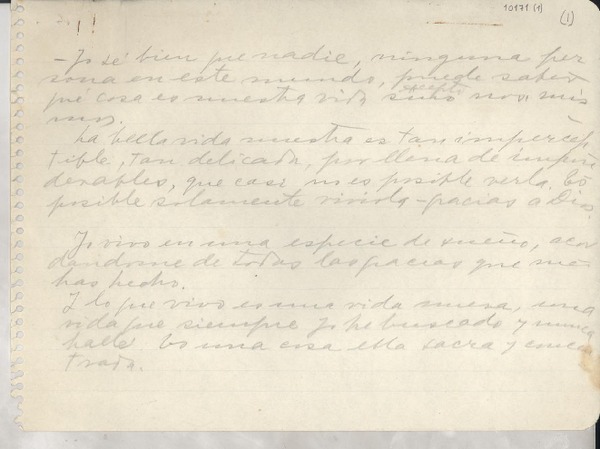 10171 (1)
(1)
! !
—Yo sé bien que nadie, ninguna per
sona en este mundo, puede saber
qué cosa es nuestra vida sino nos. mis
excepto
mos.
La bella vida nuestra es tan impercep
tible, tan delicada, por llena de impon
derables, que casi no es posible verla. Es
posible solamente vivirla - gracias a Dios.
Yo vivo en una especie de sueño, acor
dándome de todas las gracias que me
has hecho.
I lo que vivo es una vida nueva, una
vida que siempre yo he buscado y nunca
hallé. Es una cosa ella sacra y
trada.